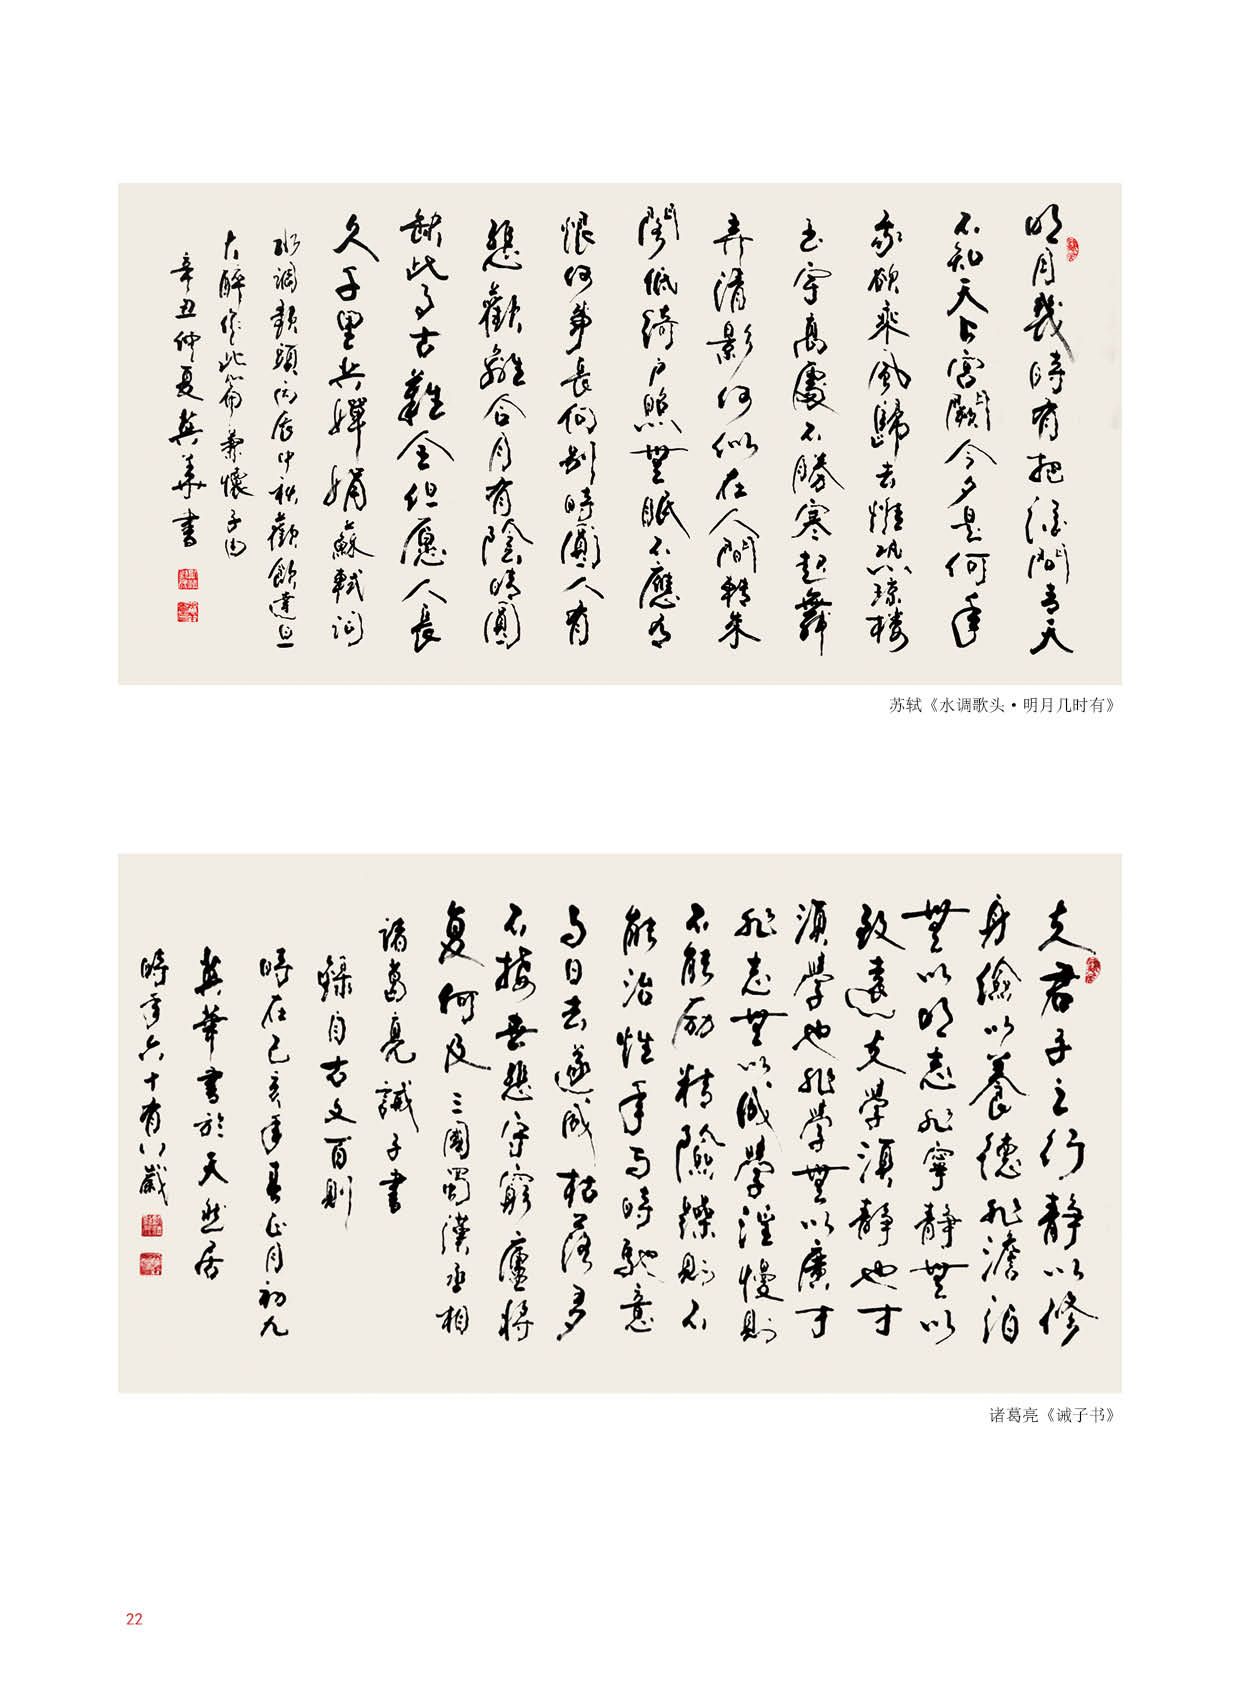 明月幾時有把酒問青天
不知天上宮闕今夕是何年
我欲乘風歸去惟恐瓊楼
玉宇高處不勝寒起舞
弄清影何似在人間轉朱
閣低綺户照無眠不應有
恨何事長向别時圓人有
悲歡離合月有陰晴圓
缺此事古難全但愿人長
久千里共嬋娟蘇軾词
水調歌頭丙辰中秋歡飲達旦
大醉作此篇兼懷子由
辛丑仲夏英華書
苏轼《水调歌头·明月几时有》
夫君子之行静以修
身儉以養德非澹泊
無以明志非寧静無以
致遠夫學須静也才
須學也非學無以廣才
非志無以成學淫慢則
不能励精險躁則不
能治性年与時馳意
与日去遂成枯落多
不接世悲守窮廬將
复何及三國蜀漢丞相
諸葛亮誡子書
錄自古文百則
時在己亥年春正月初九
英華書於天然居
時年六十有八歲
诸葛亮《诫子书》
22